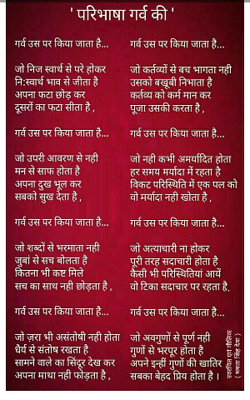 ' परिभाषा गर्व की '
गर्व उस पर किया जाता है...
जो निज स्वार्थ से परे होकर
नि:स्वार्थ भाव से जीता है
अपना फटा छोड़ कर
दूसरों का फटा सीता है ,
गर्व उस पर किया जाता है...
जो उपरी आवरण से नही
मन से साफ होता है
अपना दुख भूल कर
सबको सुख देता है ,
गर्व उस पर किया जाता है...
जो शब्दों से भरमाता नही
जुबां से सच बोलता है
कितना भी कष्ट मिले
सच का साथ नही छोड़ता है ,
गर्व उस पर किया जाता है...
जो ज़रा भी असंतोषी नही होता
धैर्य से संतोष रखता है
सामने वाले का सिंदूर देख कर
अपना माथा नही फोड़ता है ,
गर्व उस पर किया जाता है...
जो कर्तव्यों से बच भागता नही
उसको बखूबी निभाता है
कर्तव्य को कर्म मान कर
पूजा उसकी करता है ,
गर्व उस पर किया जाता है...
जो नही कभी अमर्यादित होता
हर समय मर्यादा में रहता है
विकट परिस्थिति में एक पल को
वो मर्यादा नही खोता है ,
गर्व उस पर किया जाता है...
जो अत्याचारी ना होकर
पूरी तरह सदाचारी होता है
कैसी भी परिस्थितियां आयें
वो टिका सदाचार पर रहता है,
गर्व उस पर किया जाता है...
जो अवगुणों से पूर्ण नही
गुणों से भरपूर होता है
अपने इन्हीं गुणों की खातिर
सबका बेहद प्रिय होता है ।